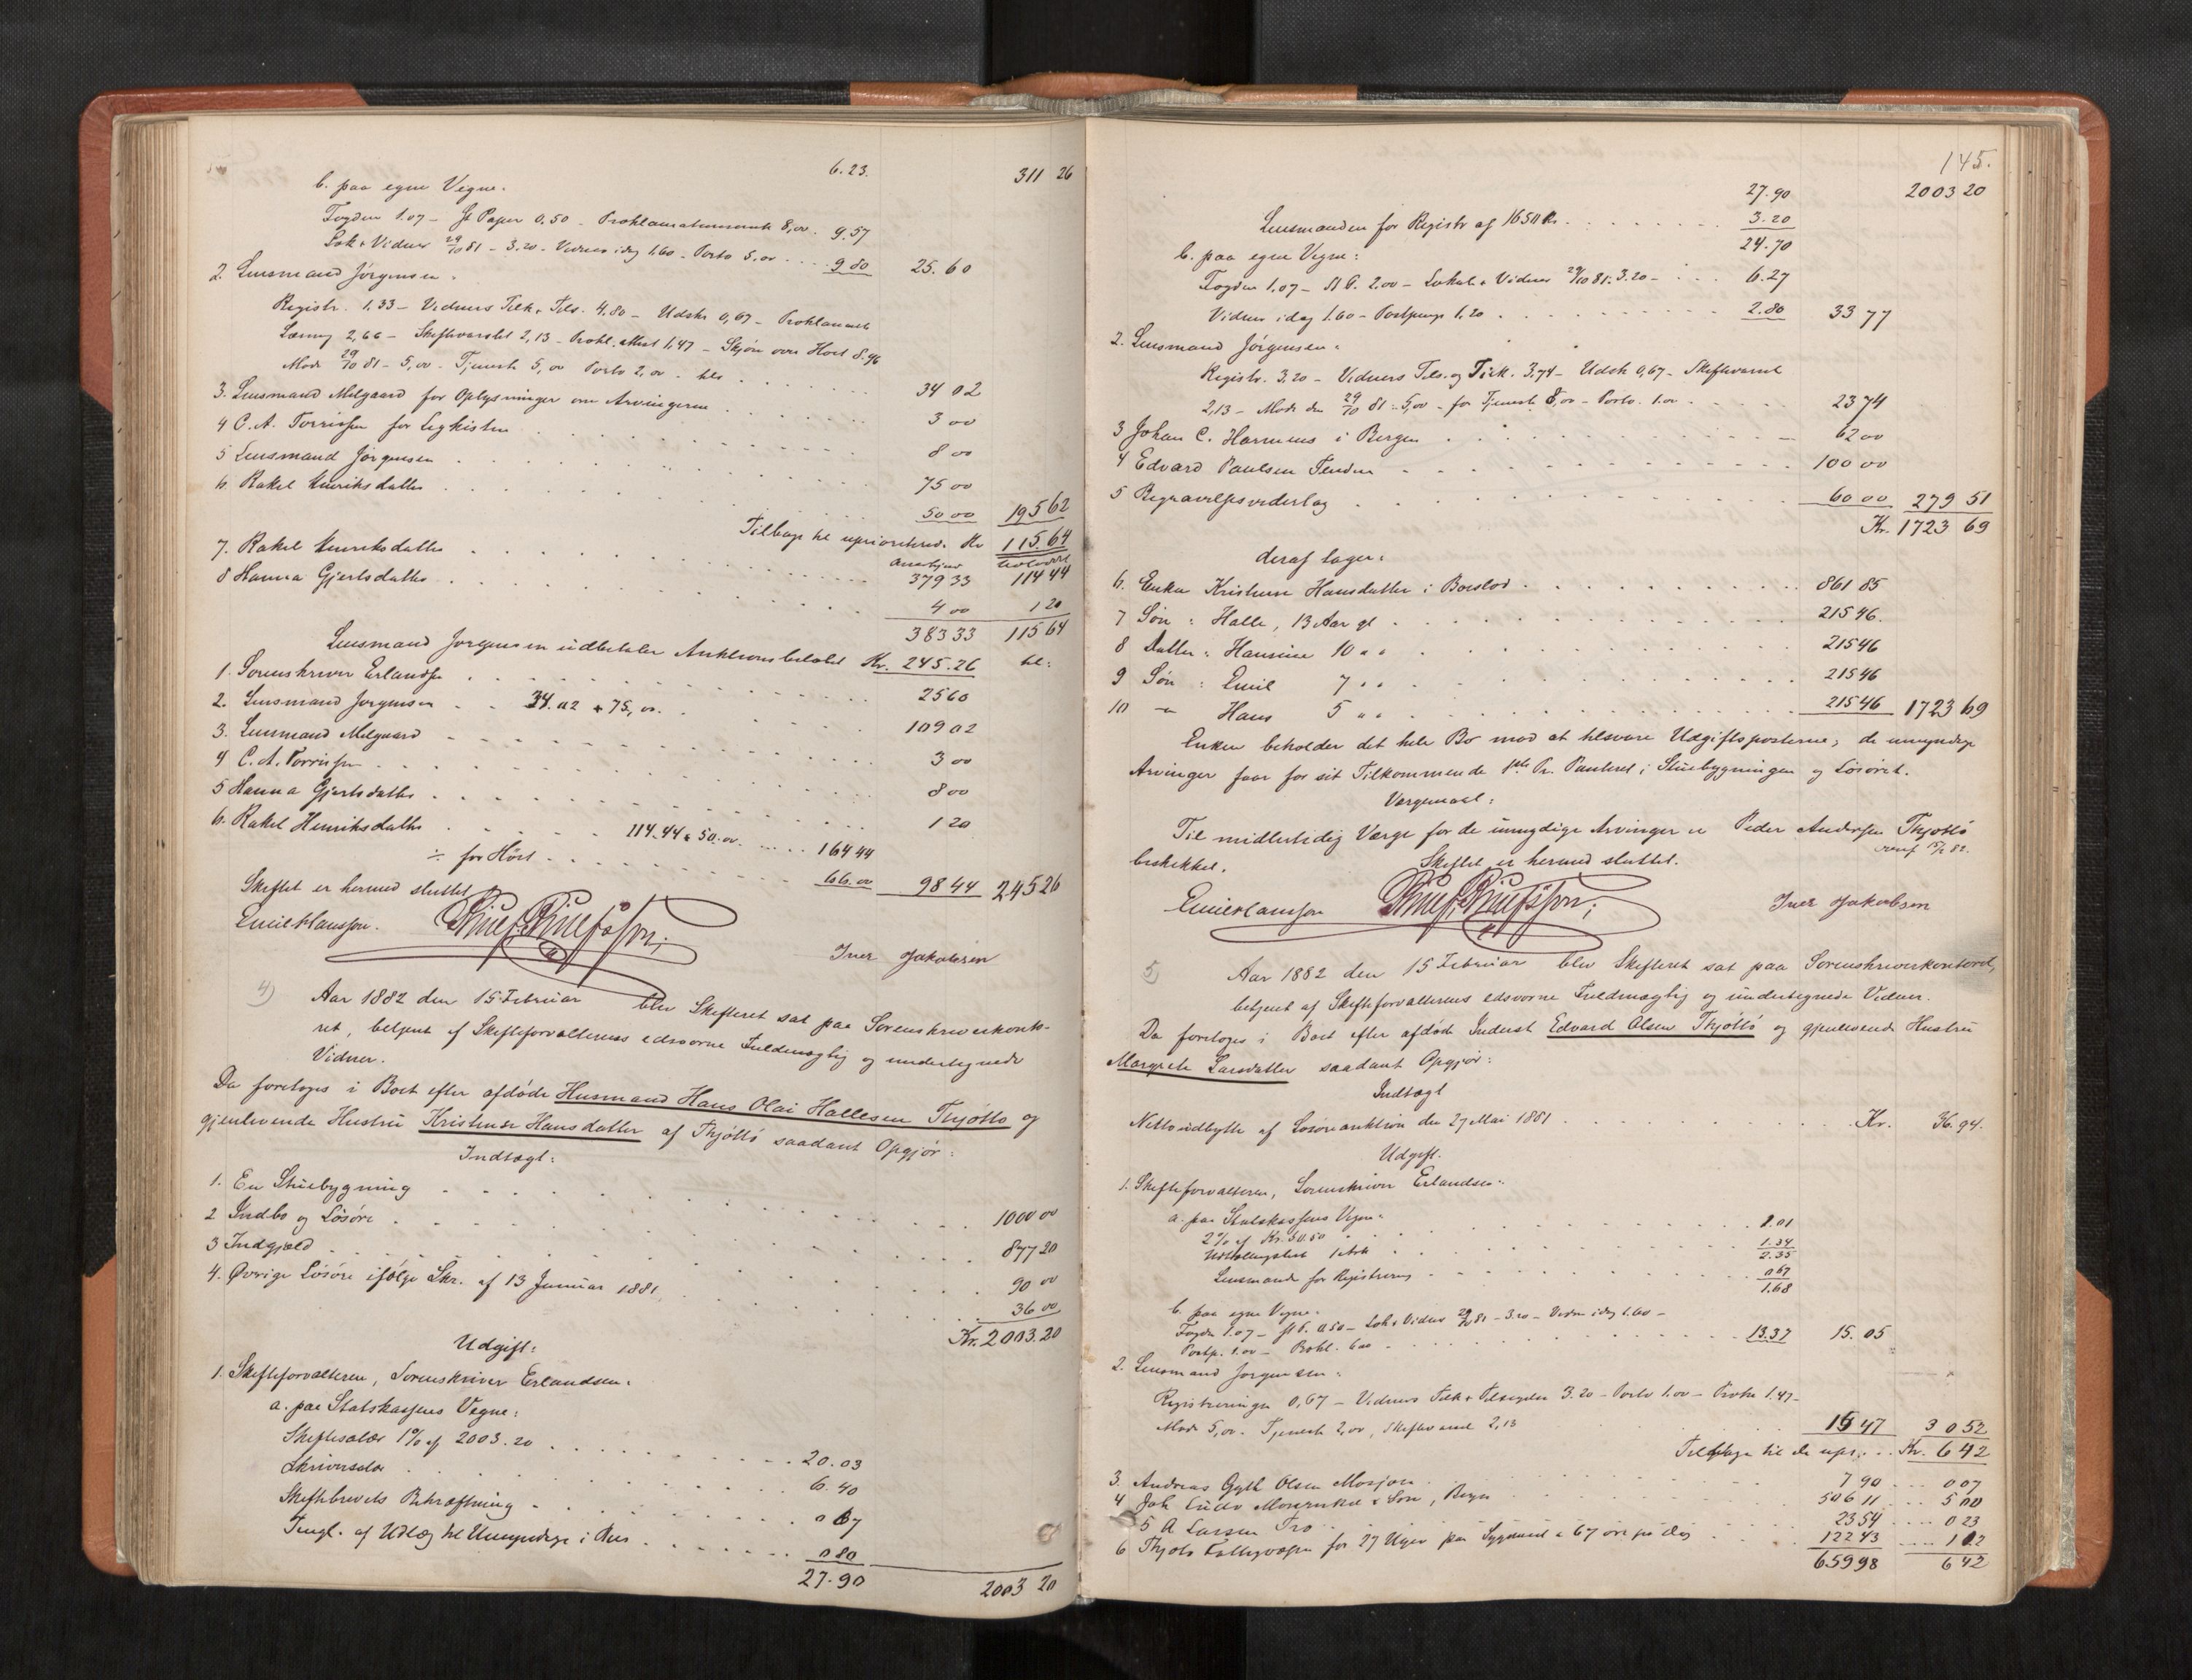 6.23. 311 26
b. paa egne Vegne.
Fogden 1.07 – St Papir 0.50 – Proklama 8,00 . 9.57
Lok. & Vidner 29/10 81 – 3.20 – Vidner idag 1.60 – Porto 5.00 . . . 9 80 25.60
2. Lensmand Jørgensen.
Registr. 1.33 – Vidners Tilk. & Tils. 4.80 – Udskr 0,67 – Proklamaets
Læsning 2,66 – Skiftevarslet 2,13 – Prokl. Attest 1,47 – Skjøn over Host 8.96
Møde 29/10 81 – 5,00 – Tjeneste 5,00 Porto 2,00 – tils . . . 34 02
3. Lensmand Milgaard for Oplysninger om Arvingerne . . . 3 00
4 C. A. Torrissen for Ligkisten . . . 8 00
5 Lensmand Jørgensen . . . 75 00
6. Rakel Henriksdatter . . . 50 00 195 62
Tilbage til uprioriterede Kr 115 64
7. Rakel Henriksdatter . . . 379 33 114 44
8 Hanna Gjertsdatter . . . 4 00 1 20
383 33 115 64
Lensmand Jørgensen udbetaler Auktionsbeløbet Kr. 245.26 til:
1. Sorenskriver Erlandsen . . . 25 60
2. Lensmand Jørgensen . . 34.02 + 75,00 . . . 109 02
3. Lensmand Milgaard . . . 3 00
4 C. A. Torrissen . . . 8 00
5 Hanna Gjertsdatter . . . 1 20
6. Rakel Henriksdatter . . . 114.44 & 50.00 . . . 164 44
÷ for Host . . . 66.00 98 44 245 26
Skiftet er hermed sluttet.
Emil Hansen. Knut Knutsson; Iver Jakobsen
4) Aar 1882 den 15 Februar blev Skifteret sat paa Sorenskriverkonto-
ret, betjent af Skifteforvalterens edsvorne Fuldmægtig og undertegnede
Vidner.
Da foretoges i Boet efter afdøde Husmand Hans Olai Hallesen Thjøttø og
gjenlevende Hustru Kristense Hansdatter af Thjøttø saadant Opgjør:
Indtægt:
1. En Stuebygning . . . 1000 00
2 Indbo og Løsøre . . . 877 20
3 Indgjæld . . . 90 00
4. Øvrige Løsøre ifølge Skr. af 13 Januar 1881 . . . 36 00
Kr. 2003.20
Udgift:
1. Skifteforvalteren, Sorenskriver Erlandsen.
a. paa Statskassens Vegne:
Skiftesalær 1% af 2003.20 . . . 20.03
Skriversalær . . . 6.40
Skiftebrevets Bekræftning . . . 0 67
Tingl. af Udlæg til Umyndige i Hus . . . 0 80
27.90 2003 20
145.
27.90 2003 20
Lensmanden for Registr af 1650 Kr. . . . 3.20
24.70
b. paa egne Vegne:
Fogden 1.07 – St P. 2.00 – Lokale & Vidner 29/10 81. 3.20 – . . . 6.27
Vidner idag 1.60 – Postpenge 1.20 . . . 2.80 33 77
2. Lensmand Jørgensen:
Registr. 3.20 – Vidners Tils. og Tilk. 3.74 – Udsk 0,67 – Skiftevarsel
2,13 – Møde den 29/10 81 – 5,00 – for Tjeneste 8,00 – Porto. 1.00 . . . 23 74
3 Johan C. Harmens i Bergen . . . 62 00
4 Edvard Paulsen . . . 100 00
5 Begravelsesvederlag . . . 60 00 279 51
Kr. 1723 69
deraf tager:
6. Enken Kristense Hansdatter i Boeslod . . . 861 85
7 Søn: Halle, 13 Aar gl . . . 215 46.
8 Datter: Hansine 10 " " . . . 215 46
9 Søn: Emil 7 " " . . . 215 46
10 – " – Hans 5 " " . . . 215 46 1723 69
Enken beholder det hele Bo mod at tilsvare Udgiftsposterne; de umyndige
Arvinger faar for sit Tilkommende 1ste Pr. Panteret i Stuebygningen og Løsøret.
Værgemaal:
Til midlertidig Værge for de umyndige Arvinger er Peder Andersen Thjøttø
beskikket. Skiftet er hermed sluttet.
Emil Hansen Knut Knutsson; Iver Jakobsen
5) Aar 1882 den 15 Februar blev Skifteret sat paa Sorenskriverkontoret,
betjent af Skifteforvalterens edsvorne Fuldmægtig og undertegnede Vidner.
Da foretoges i Boet efter afdøde Inderst Edvard Olsen Thjøttø og gjenlevende Hustru
Margrete Larsdatter saadant Opgjør:
Indtægt
Nettoudbytte af Løsøreauktion den 27 Mai 1881 . . . Kr. 36.94.
Udgift.
1. Skifteforvalteren, Sorenskriver Erlandsen:
a. paa Statskassens Vegne:
2% af Kr. 50.50 . . . 1.01
1 Ark . . . 1.34
2.35
Lensmanden for Registrering . . . 0 67
1.68
b. paa egne Vegne.
Fogden 1.07 – St P. 0.50 – Lok & Vidner 29/10 81 – 3.20 – Vidner idag 1.60 –
Postp. 1.00 – Prokl. 6.00 . . . 13.37 15.05
2. Lensmand Jørgensen:
Registreringen 0,67 – Vidners Tilk & Tilsigelse 3.20 – Porto 1.00 – Prokl 1.47 –
Møde 5,00 – Tjeneste 2,00, Skiftevarsel 2,13 15 47 30 52
Tilbage til de upr: . . Kr. 6 42
3. Andreas Olsen Mosjøen . . . 7 90 . . . 0 07
4 Joh Ludv Mowinckel & Søn, Bergen . . . 506 11 . . . 5 00
5 A Larsen Tro . . . 23 54 . . . 0 23
6 Thjøtø Fattigvæsen for 27 Uger paa Sygehuset a 67 øre pr Dag . . . 122 43 . . . 1 12
659 98 6 42